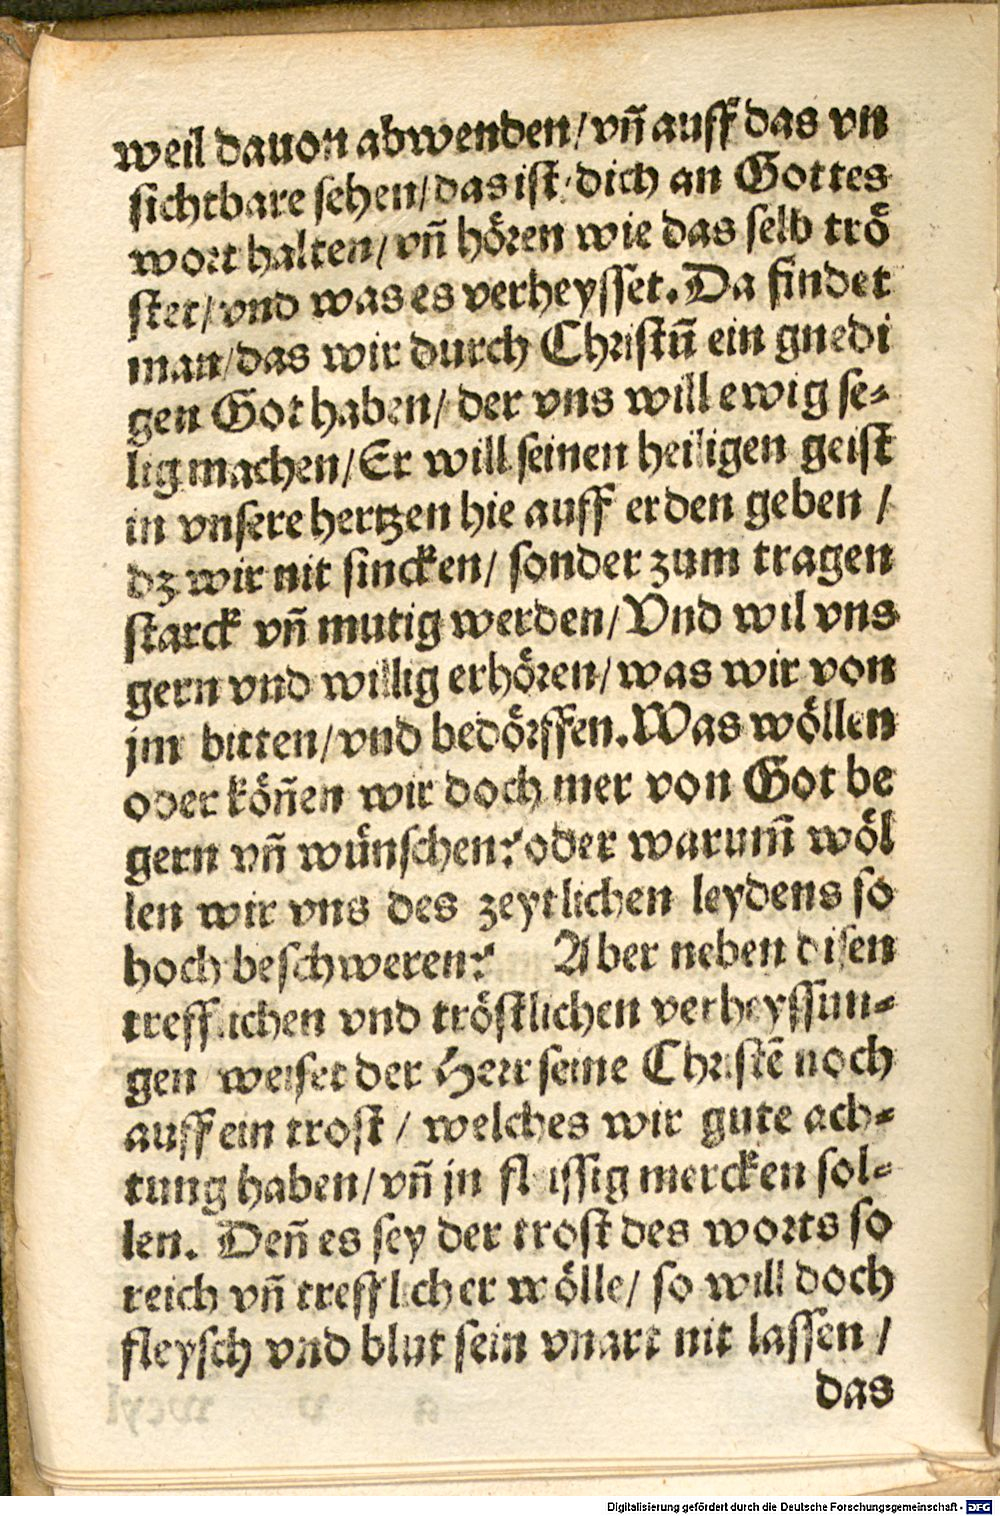 weil dauon abwenden/ vñ auff das vn
sichtbare sehen/ das ist/ dich an Gottes
wort halten/ vñ hören wie das selb trö
stet/ vnd was es verheysset. Da findet
man/ das wir durch Christū ein gnedi
gen Got haben/ der vns will ewig se-
lig machen/ Er will seinen heiligen geist
in vnsere hertzen hie auff erden geben /
dz wir nit sincken/ sonder zum tragen
starck vñ mutig werden/ Vnd wil vns
gern vnd willig erhören/ was wir von
jm bitten/ vnd bedörffen. Was wöllen
oder köñen wir doch mer von Got be
gern vñ wünschen? oder warum̃ wöl
len wir vns des zeytlichen leydens so
hoch beschweren? Aber neben disen
trefflichen vnd tröstlichen verheyssun-
gen weiset der Herr seine Christē noch
auff ein trost / welches wir gute ach-
tung haben/ vñ jn fleissig mercken sol-
len. Deñ es sey der trost des worts so
reich vñ trefflicher wölle/ so will doch
fleysch vnd blut sein vnart nit lassen /
das
Digitalisierung gefördert durch die Deutsche Forschungsgemeinschaft - DFG